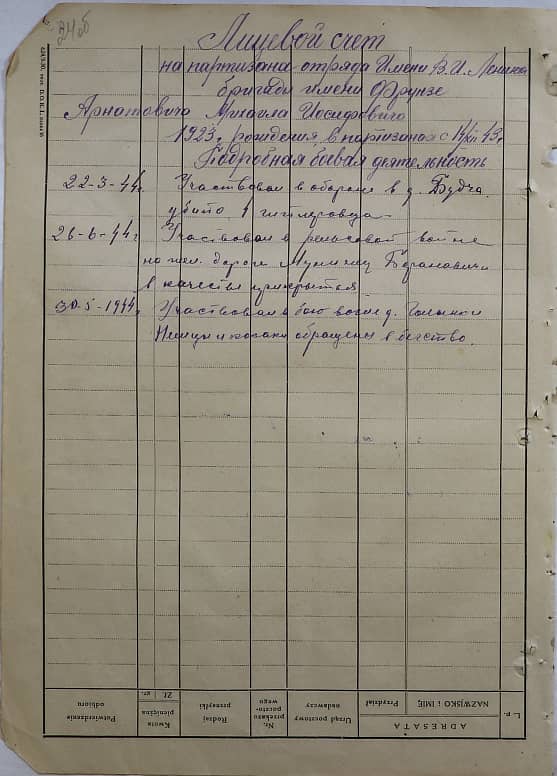 246
Лицевой счет
на партизана отряда Имени В.И. Ленина
бригады имени Фрунзе
Арнатовича Михаила Иосифовича
1923г. рождения, в партизанах с 43г.
Подробная боевая деятельность
22-3-44г. Участвовал в обороне в д. Будча.
убито 1 гитлеровца
26-6-44г. Участвовал в рельсовой войне
на жел. дороге Барановичи
в качестве прикрытия
30-5-1944г. Участвовал в бою возле д.
Немцы и козаки обращены в бегство.
L. p.
ADRESATA
NAZWISKO i IMIĘ
Przydział
Urząd pocztowy nadawczy
Nr. przekazu poczto-wego
Rodzaj przesyłki
Kwota pieniężna
Zł. gr.
Potwierdzenie odbioru